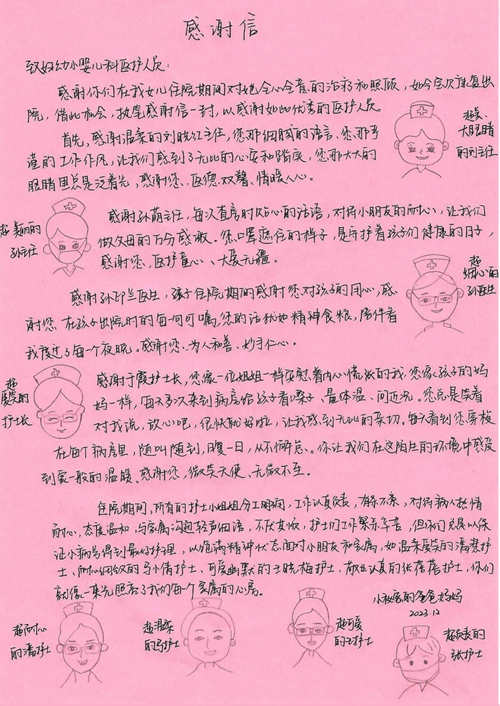 感谢信
致妇幼小婴儿科医护人员:
感谢你们在我女儿住院期间对她全心全意的治疗和照顾,如今会次康复出
院,借此机会,执笔感谢信一封,以感谢如此优秀的医护人员。
首先,感谢温柔的刘晓红主任,您那细腻的语言,您那严
谨的工作作风,让我们感到了无比的心安和踏实,您那大大的
眼睛里总是泛着光,感谢您,医德双馨,情暖人心。
超美、
大眼睛
的刘主任
感谢孙荫主任,每次查房时贴心的话语,对待小朋友的耐心,让我们
做父母的万分感激。您嘱医住的样子,是守护着孩子们健康的日子,
感谢您,医护童心、大爱无疆。
超美丽的
孙主任
感谢孙印兰医生,孩子住院期的感谢您对孩子的用心,感
谢您在孩子出院时的每一句叮嘱,您的话犹如精神食粮,陪伴着
我度过了每个夜晚。感谢您、为人和善、妙手仁心。
超
细心的
孙医生
感谢于霞护士长,您像一位姐姐一样安慰着内心慌张的我,您像孩子的妈
妈一样,每天多次来到病房给孩子看嗓子、量体温、问近况。您总是笑着
对我说,放心吧,很快就好啦,让我感到无比的亲切。每次看到您穿梭
在每个病房里,随叫随到,日复一日,从不懈怠。你让我们在这陌生的环境中感受
到家一般的温暖。感谢您,微笑天使、无微不至。
超
暖的
护士长
住院期间,所有的护士小姐姐分工明确,工作认真负责,有条不紊,对待病人热情
耐心,态度温和,与家属沟通轻声细语,不厌其烦,护士们工作繁杂辛苦,但你们总是以保
证小病号得到最好护理,以饱满精神状态面对小朋友和家属,如温柔的潘慧护
士、耐心细致的马小倩护士、可爱幽默的王晓梅护士、敬业认真的张蓓蓓护士,你们
就像一束光照亮了我们每个家属的心房。
小敏的爸爸妈妈
2023.12
超耐心
的潘护士
超温柔
的马护士
超可爱
的王护士
超负责的
张护士